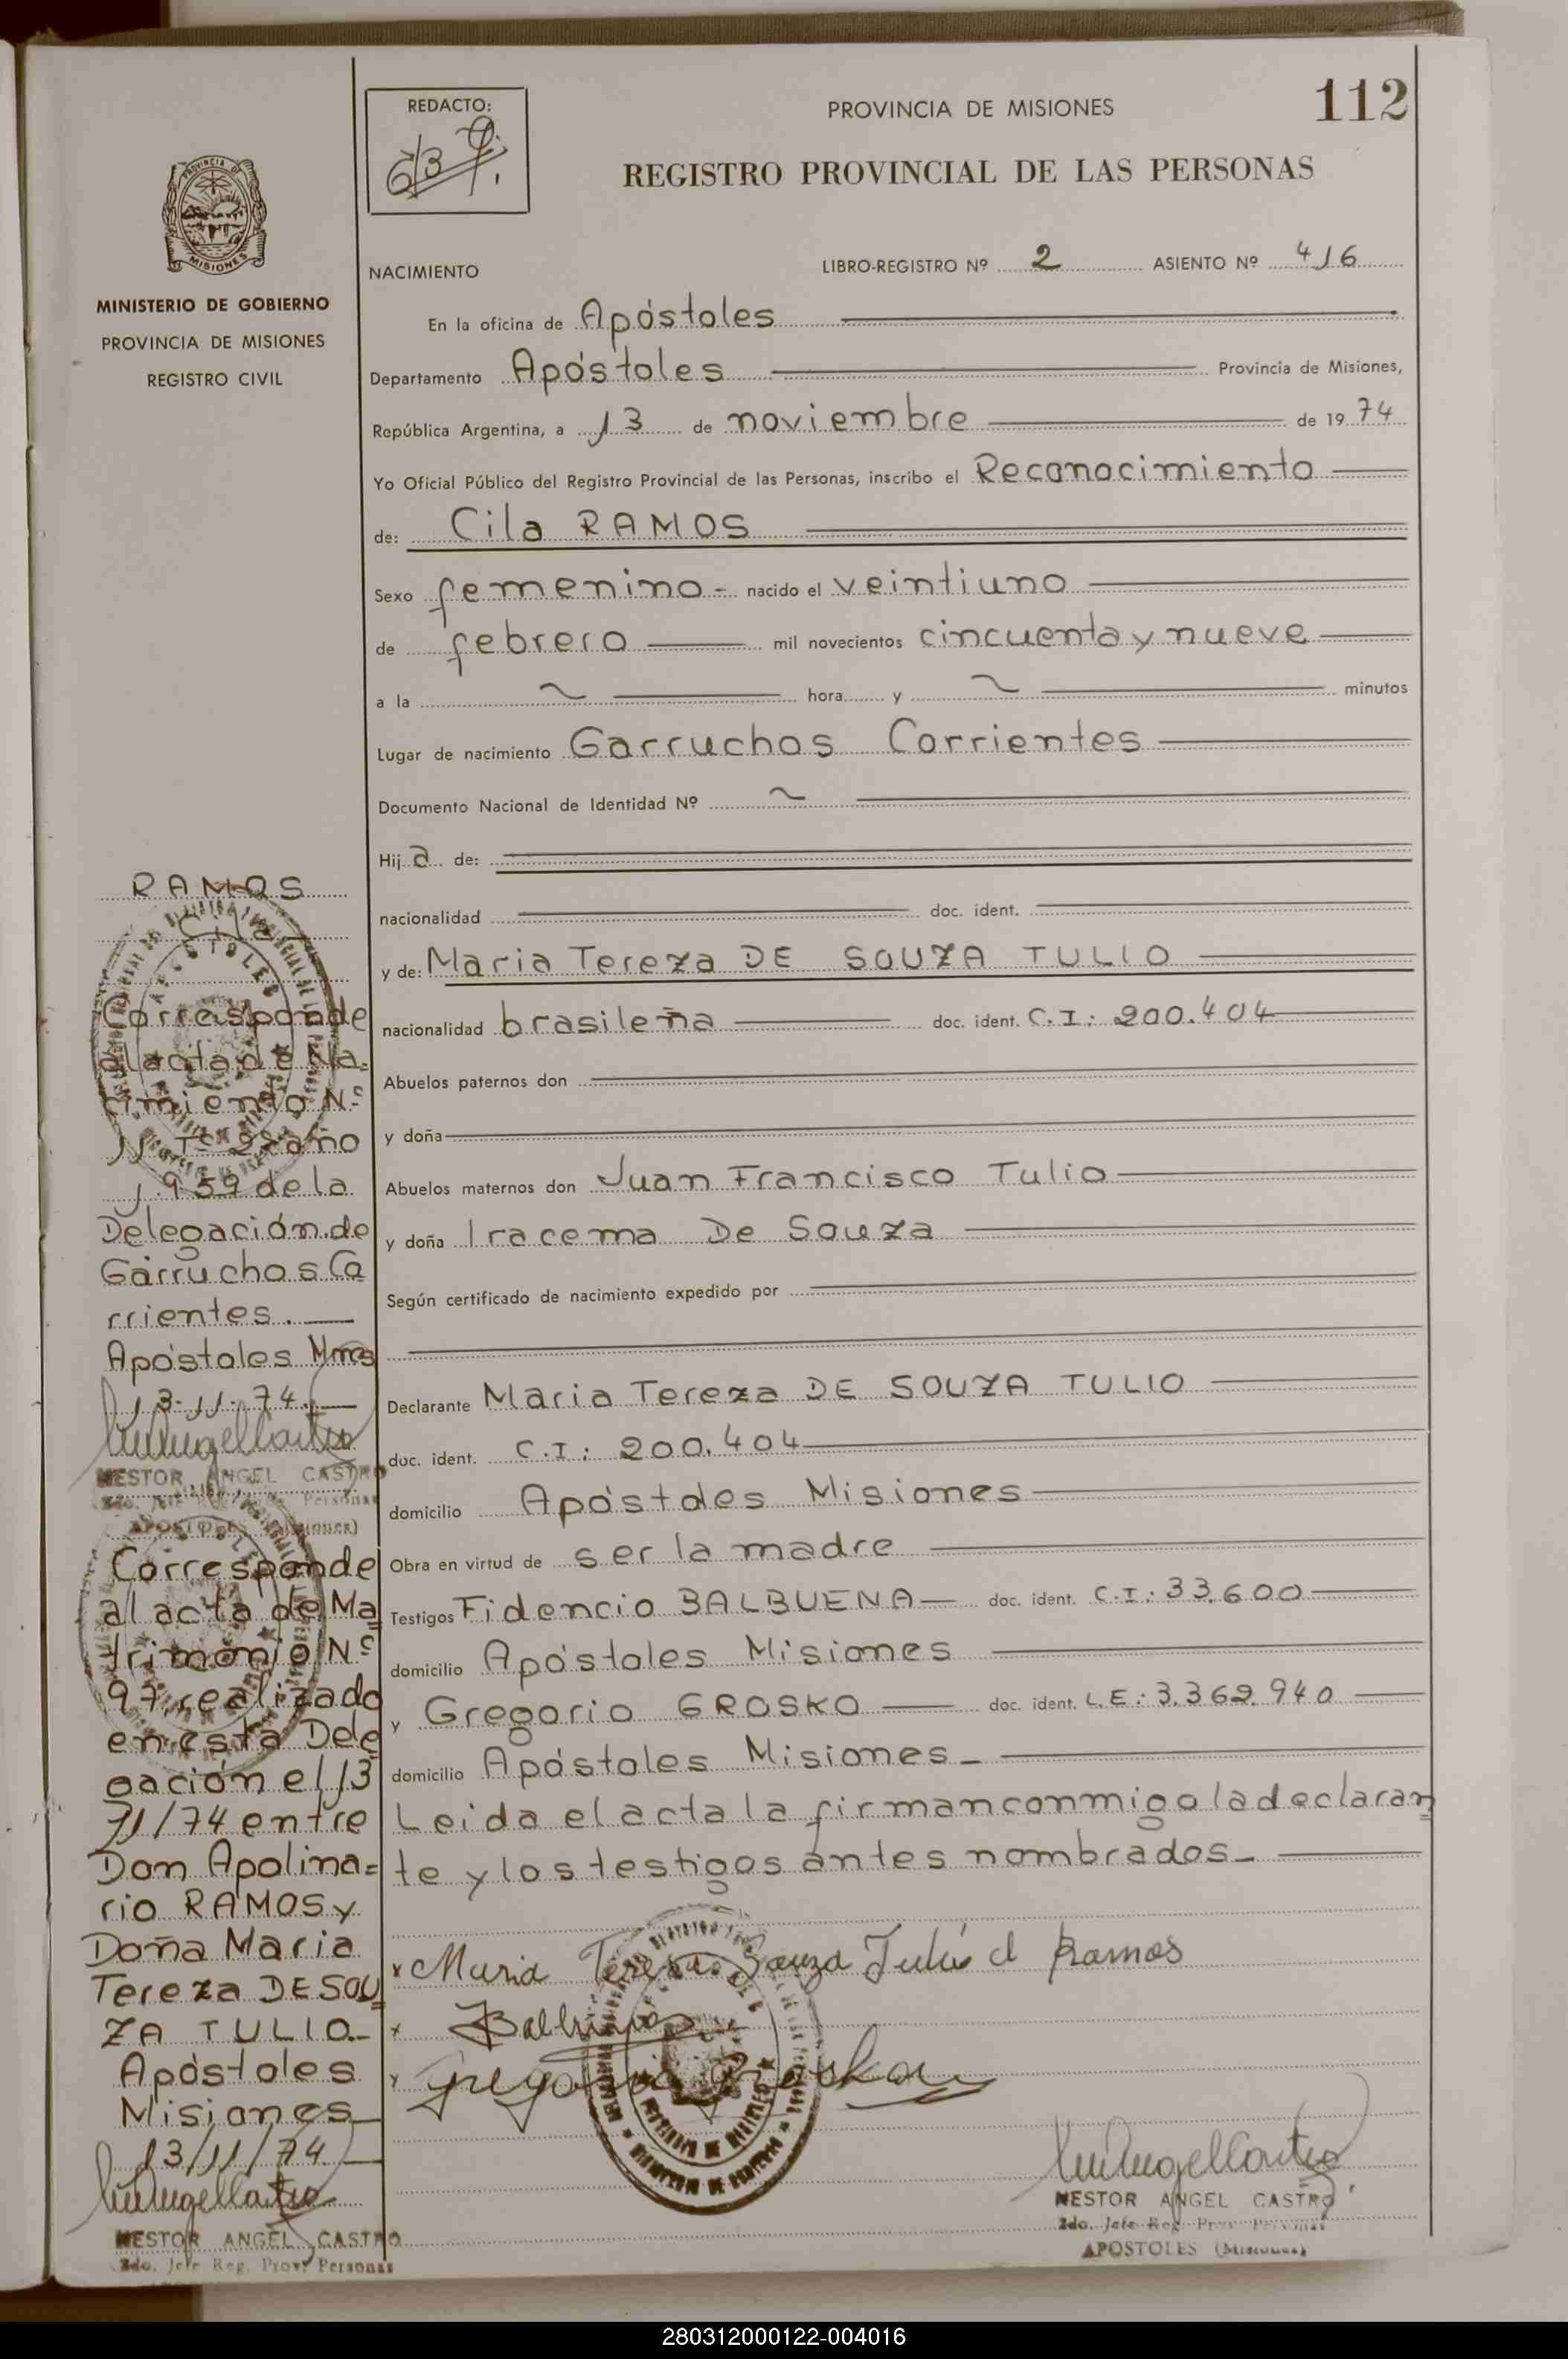 112
REDACTO:
PROVINCIA DE MISIONES
REGISTRO PROVINCIAL DE LAS PERSONAS
PROVINCIA DE
MISIONES
MINISTERIO DE GOBIERNO
PROVINCIA DE MISIONES
REGISTRO CIVIL
NACIMIENTO
LIBRO-REGISTRO Nº 2 ASIENTO Nº 416
En la oficina de Apóstoles
Departamento Apóstoles Provincia de Misiones,
República Argentina, a 13 de noviembre de 1974
Yo Oficial Público del Registro Provincial de las Personas, inscribo el Reconocimiento
de: Cila RAMOS
Sexo femenino - nacido el veintiuno
de febrero mil novecientos cincuenta y nueve
a la ~ hora y ~ minutos
Lugar de nacimiento Garruchos Corrientes
Documento Nacional de Identidad Nº ~
Hija de:
nacionalidad doc. ident.
y de: Maria Tereza DE SOUZA TULIO
nacionalidad brasileña doc. ident. C.I: 200.404
Abuelos paternos don
y doña
Abuelos maternos don Juan Francisco Tulio
y doña Iracema De Souza
Según certificado de nacimiento expedido por
Declarante Maria Tereza DE SOUZA TULIO
doc. ident. C.I: 200.404
domicilio Apóstoles Misiones
Obra en virtud de ser la madre
Testigos Fidencio BALBUENA doc. ident. C.I: 33.600
domicilio Apóstoles Misiones
y Gregorio GROSKO doc. ident. L.E: 3.362.940
domicilio Apóstoles Misiones
Leida el acta la firman conmigo la declaran=
te y los testigos antes nombrados
Maria Tereza Souza d Ramos
NESTOR ANGEL CASTRO
2do. Jefe Reg. Prov. Personas
APOSTOLES (Misiones)
RAMOS
Cila
Corresponde
al acta de Na=
cimiento Nº
11 Tº 22 año
1.959 de la
Delegación de
Garruchos Co
rrientes.
Apóstoles Mnes
13-11-74.
NESTOR ANGEL CASTRO
2do. Jefe Reg. Prov. Personas
APOSTOLES (Misiones)
Corresponde
al acta de Ma=
trimonio Nº
97 realizado
en esta Dele
gación el 13
11/74 entre
Don Apolina=
rio RAMOS y
Doña Maria
Tereza DE SOU=
ZA TULIO.-
Apóstoles
Misiones
13/11/74
NESTOR ANGEL CASTRO
2do. Jefe Reg. Prov. Personas
280312000122-004016